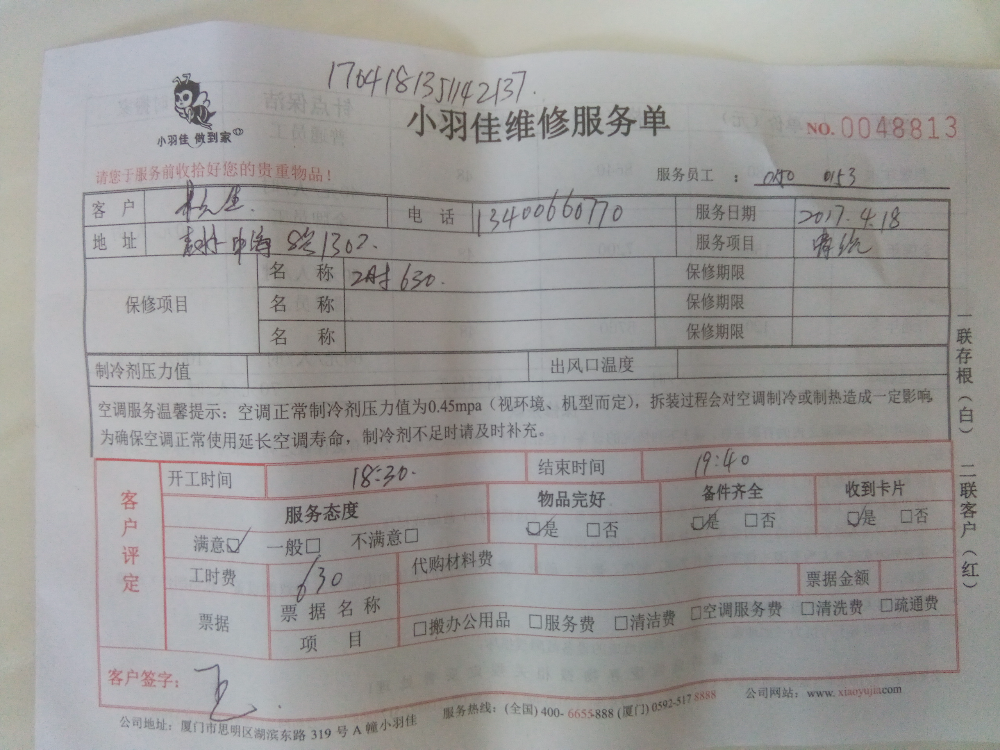 1704181351142137.
小羽佳 做到家
小羽佳维修服务单
NO. 0048813
请您于服务前收拾好您的贵重物品！
服务员工 ： 0150 0153
客 户 电 话 13400660770 服务日期 2017.4.18
地 址 1302. 服务项目
保修项目 名 称 630. 保修期限
名 称 保修期限
名 称 保修期限
制冷剂压力值 出风口温度
空调服务温馨提示：空调正常制冷剂压力值为0.45mpa（视环境、机型而定），拆装过程会对空调制冷或制热造成一定影响，
为确保空调正常使用延长空调寿命，制冷剂不足时请及时补充。
一联存根（白） 二联客户（红）
客户评定
开工时间 18:30. 结束时间 19:40
服务态度 物品完好 备件齐全 收到卡片
满意☑ 一般□ 不满意□ ☑是 □否 ☑是 □否 ☑是 □否
工时费 630 代购材料费
票据 票据名称 票据金额
项 目 □搬办公用品 □服务费 □清洁费 □空调服务费 □清洗费 □疏通费
客户签字：
公司地址：厦门市思明区湖滨东路 319 号 A 幢小羽佳 服务热线：(全国) 400- 6655-888 (厦门) 0592-517 8888 公司网站：www. xiaoyujia.com